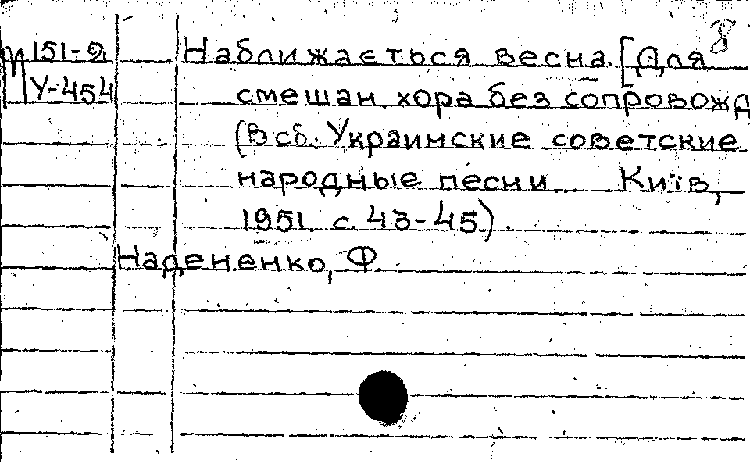 8
М151-2 Наближається весна. [Для
У-454 смешан. хора без сопровожд
(В сб: Украинские советские
народные песни. Київ,
1951. с. 43-45).
Надененко, Ф.